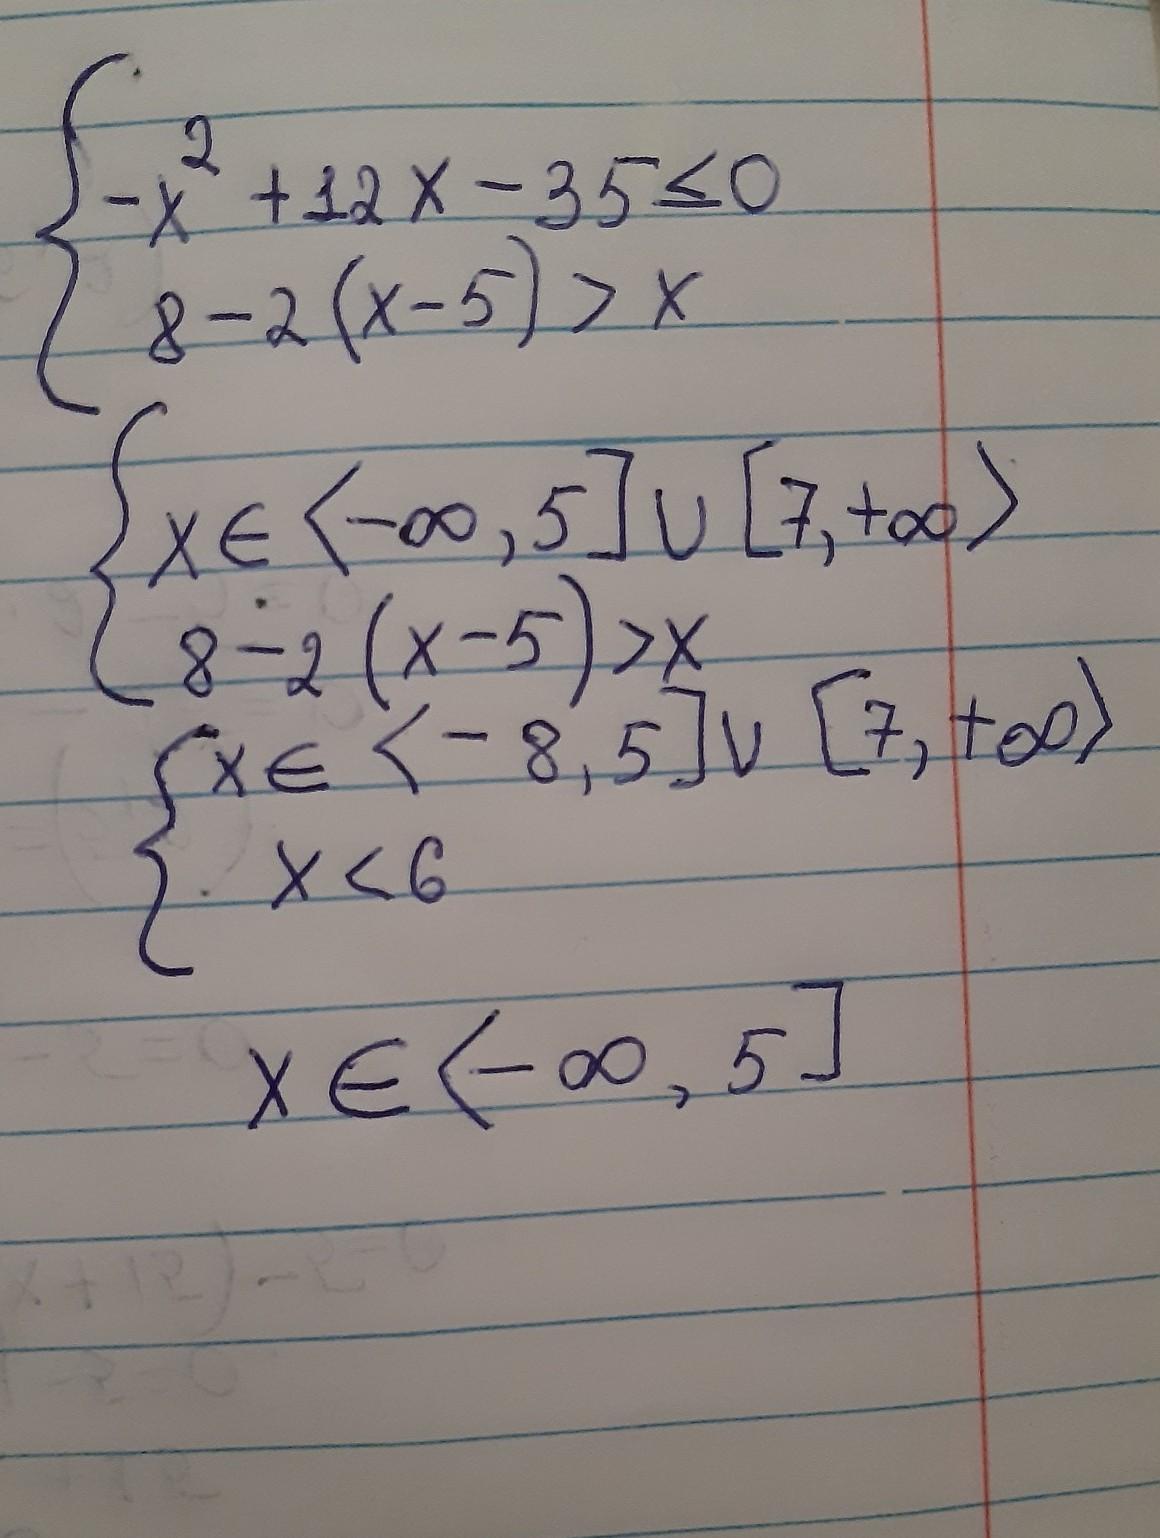 -x² +12x-35≤0
8-2(x-5)>x
x∈⟨-∞,5]∪[7,+∞⟩
8-2(x-5)>x
x∈⟨-8,5]∪[7,+∞⟩
x<6
x∈⟨-∞,5]